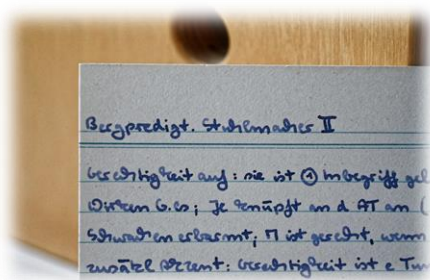 Bergpredigt. Stuhlmacher II
Gerechtigkeit auf: sie ist ① Inbegriff gel
Wirken G.es; Je knüpft an d AT an (
Schwachen erbarmt; M ist gerecht, wenn
zusätzl Akzent: Gerechtigkeit ist e Tun